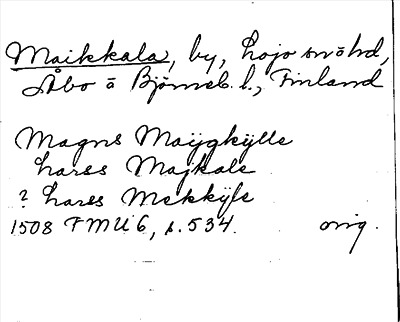 Maikkala, by, Lojo snöhd,
Åbo o Björneb. l., Finland
Magns Maijgkijlle
Lars Majkale
? Lares Mekkijle
1508 FMU 6, s. 534. orig.